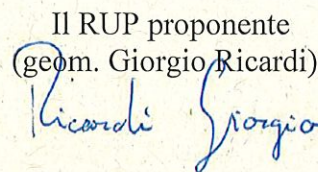 Il RUP proponente
(geom. Giorgio Ricardi)
Ricardi Giorgio